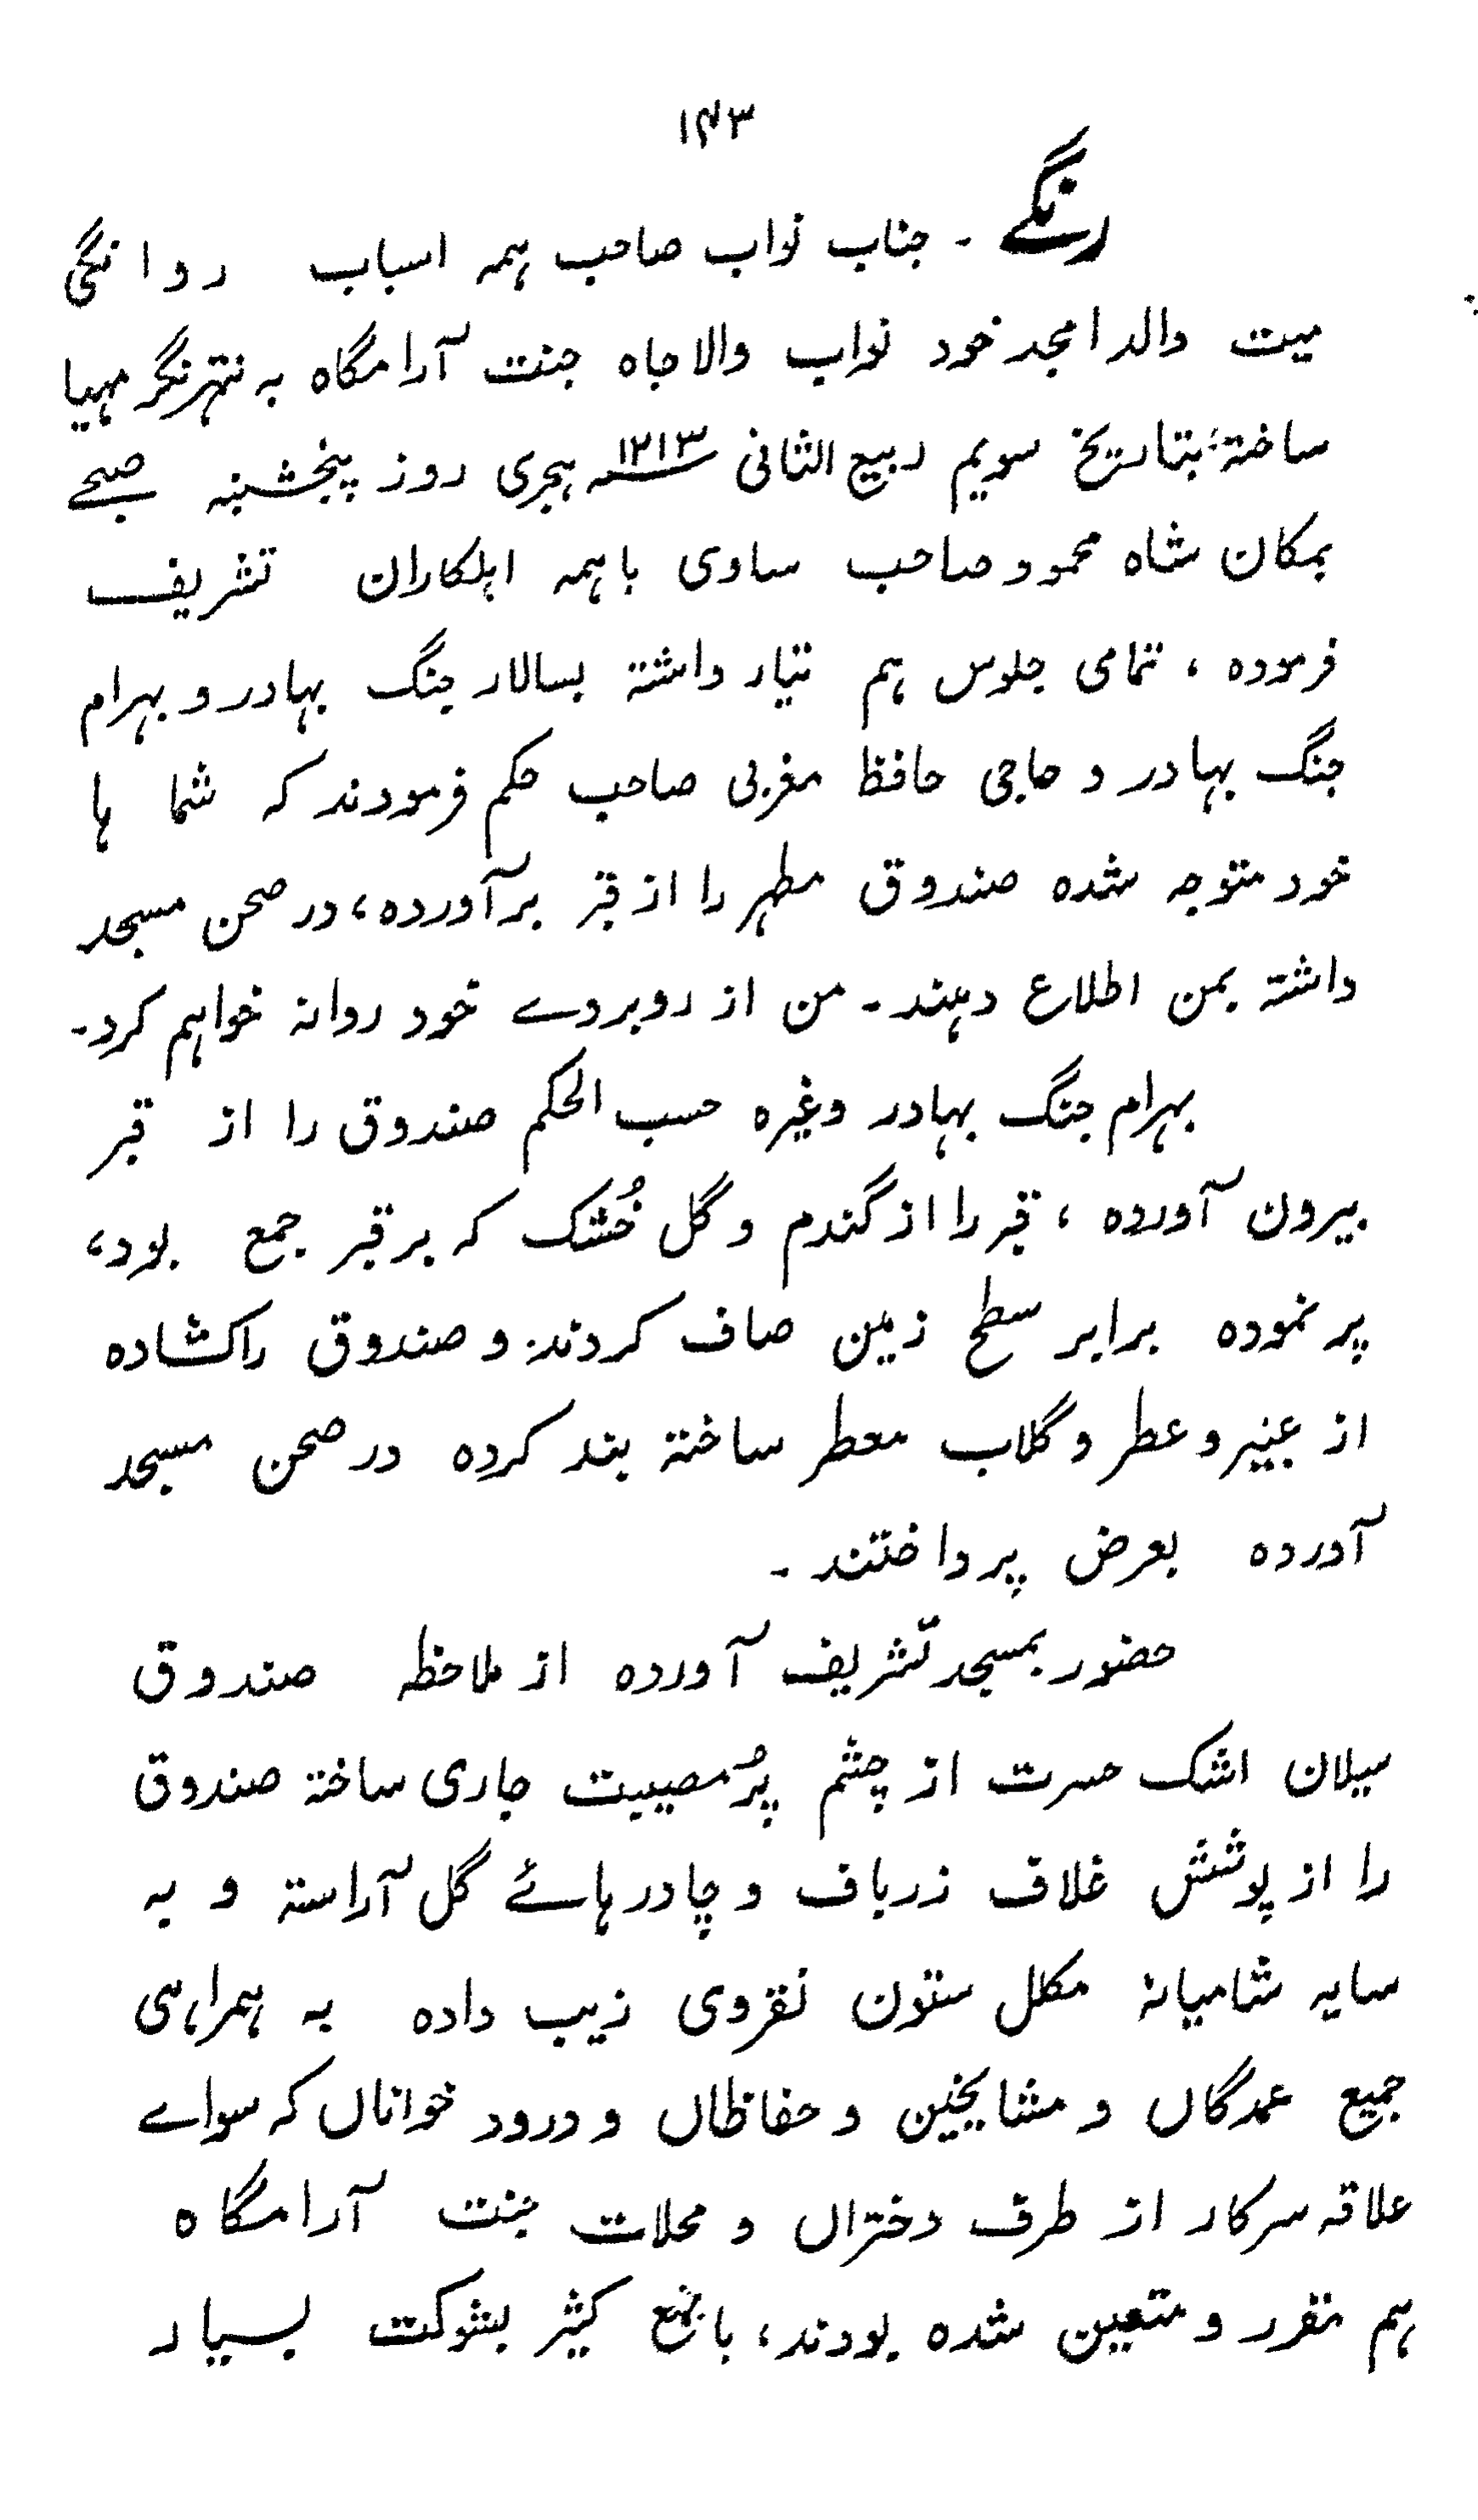 ۱۴۳
رنگے ۔ جناب نواب صاحب ہمہ اسباب روانگی
میت والد امجد خود نواب والا جاہ جنت آرامگاہ بہ نتہرنگر مہیا
ساختہ بتاریخ سویم ربیع الثانی ۱۲۱۳ ہجری روز پنجشنبہ صبحے
بمکان شاہ محمود صاحب ساوی باہمہ اہلکاران تشریف
فرمودہ ، تمامی جلوس ہم تیار داشتہ بسالار جنگ بہادر و بہرام
جنگ بہادر و حاجی حافظ مغربی صاحب حکم فرمودند کہ شما ہا
خود متوجہ شدہ صندوق مطہر را از قبر برآوردہ، در صحن مسجد
داشتہ بمن اطلاع دہند۔ من از روبروے خود روانہ خواہم کرد۔
بہرام جنگ بہادر وغیرہ حسب الحکم صندوق را از قبر
بیرون آوردہ ، قبر را از گندم و گل خُشک کہ بر قبر جمع بود،
پر نمودہ برابر سطح زمین صاف کردند و صندوق را کشادہ
از عنبر و عطر و گلاب معطر ساختہ بند کردہ در صحن مسجد
آوردہ بعرض پرداختند ۔
حضور بمسجد تشریف آوردہ از ملاحظہ صندوق
سیلان اشک حسرت از چشم پُر مصیبت جاری ساختہ صندوق
را از پوشش غلاف زرباف و چادر ہائے گل آراستہ و بہ
سایہ شامیانہ مکلل ستون نقروی زیب دادہ بہ ہمراہی
جمیع عمدگاں و مشایخین و حفاظاں و درود خواناں کہ سواے
علاقہ سرکار از طرف دختراں و محلات جنت آرامگاہ
ہم مقرر و متعین شدہ بودند، با مجمع کثیر بشوکت بسیار